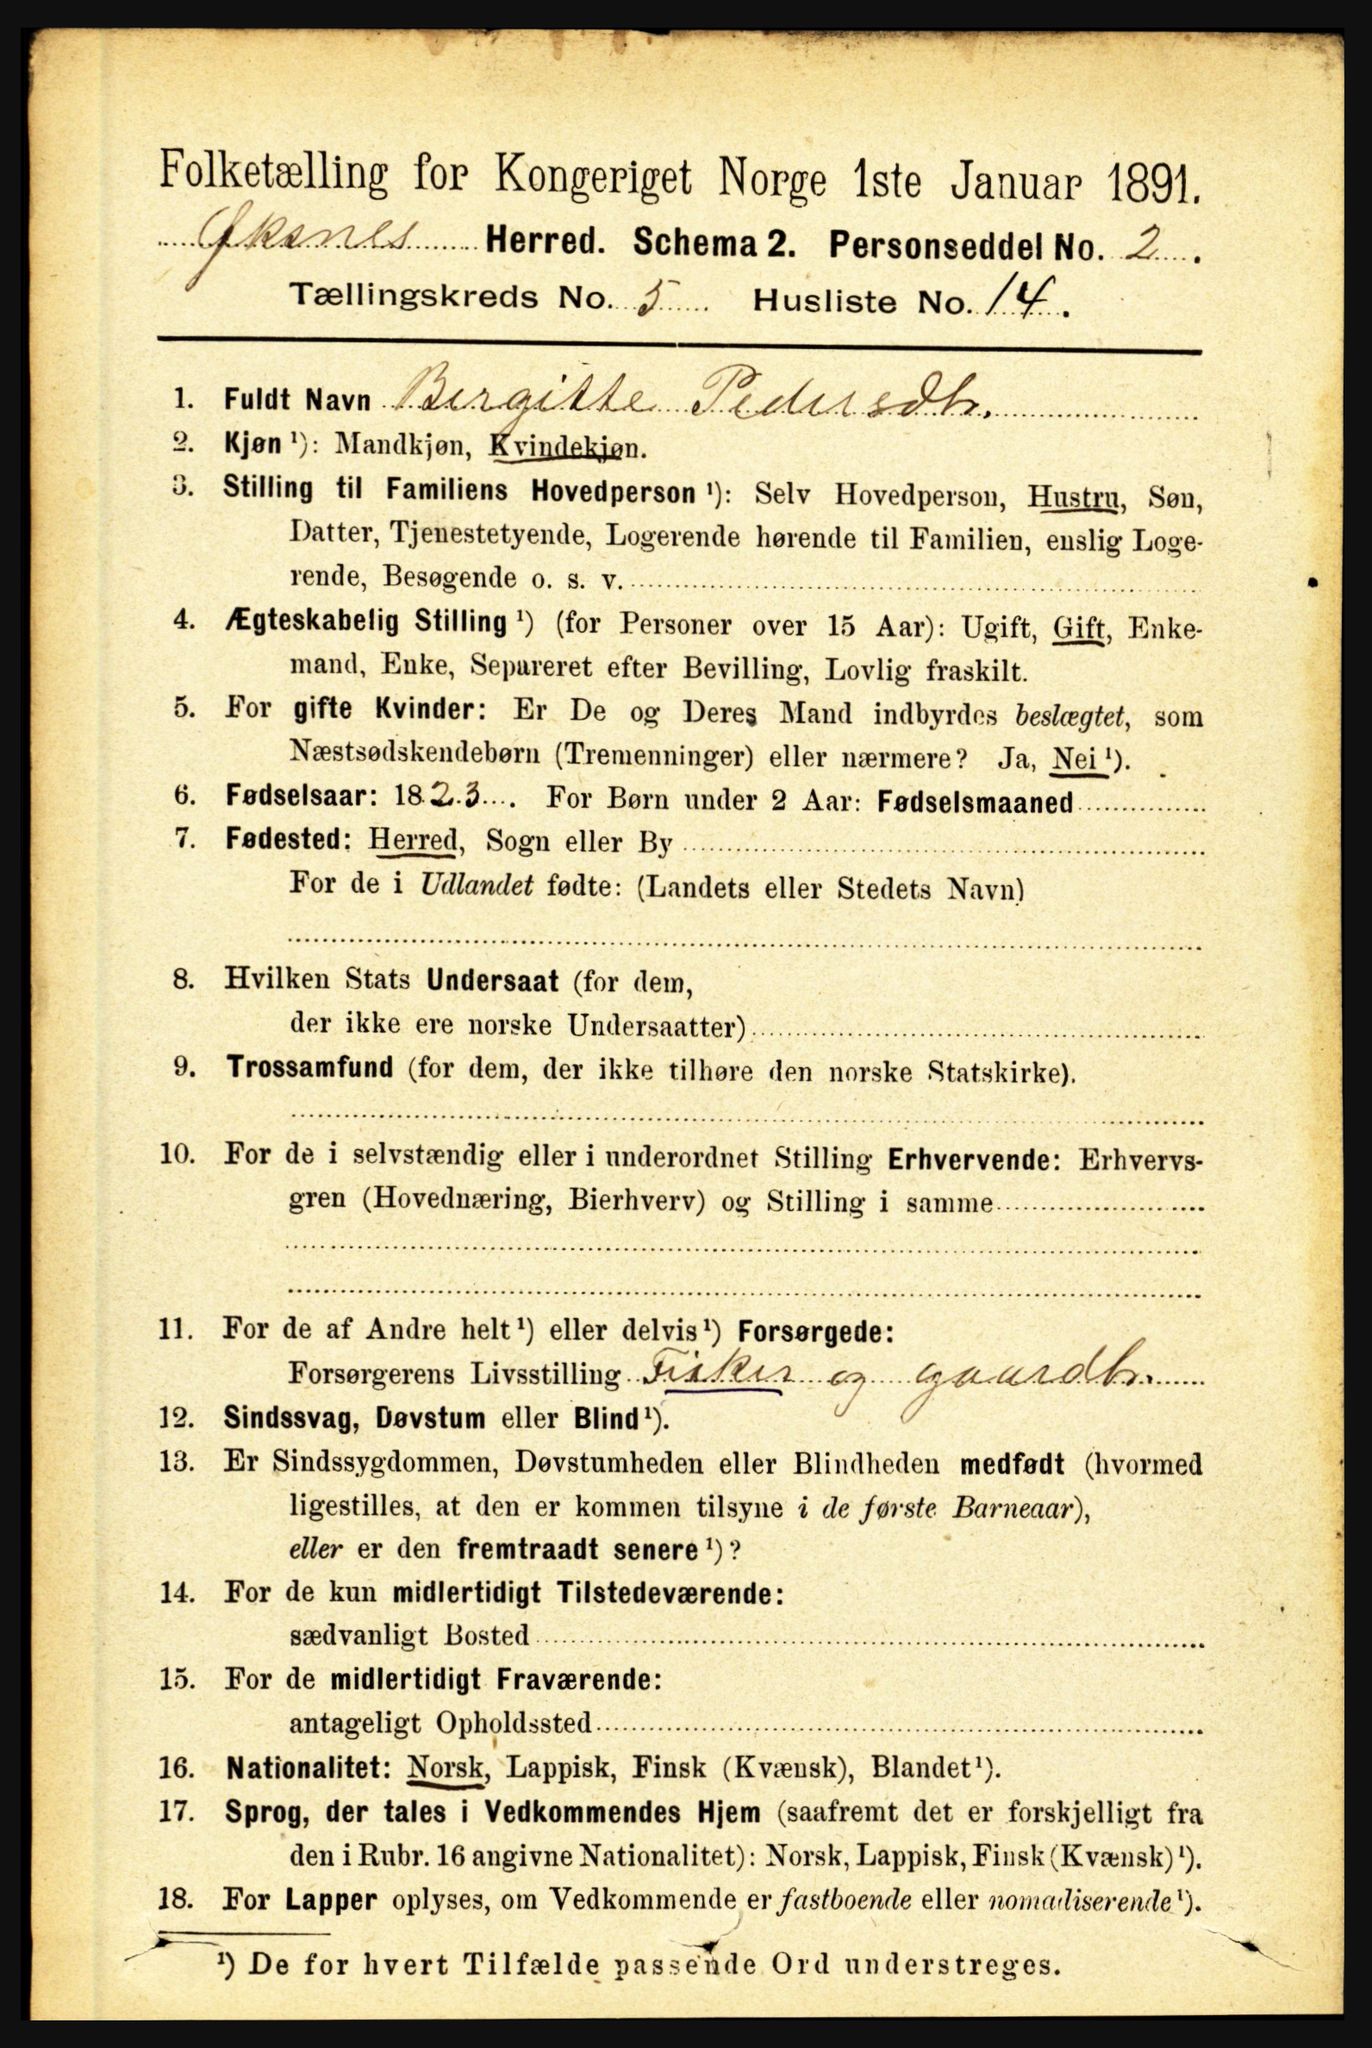 Folketælling for Kongeriget Norge 1ste Januar 1891.
Øksnes Herred. Schema 2. Personseddel No. 2.
Tællingskreds No. 5 Husliste No. 14.
1. Fuldt Navn Birgitte Pedersdtr.
2. Kjøn ¹): Mandkjøn, Kvindekjøn.
3. Stilling til Familiens Hovedperson ¹): Selv Hovedperson, Hustru, Søn,
Datter, Tjenestetyende, Logerende hørende til Familien, enslig Loge-
rende, Besøgende o. s. v.
4. Ægteskabelig Stilling ¹) (for Personer over 15 Aar): Ugift, Gift, Enke-
mand, Enke, Separeret efter Bevilling, Lovlig fraskilt.
5. For gifte Kvinder: Er De og Deres Mand indbyrdes beslægtet, som
Næstsødskendebørn (Tremenninger) eller nærmere? Ja, Nei ¹).
6. Fødselsaar: 1823. For Børn under 2 Aar: Fødselsmaaned
7. Fødested: Herred, Sogn eller By
For de i Udlandet fødte: (Landets eller Stedets Navn)
8. Hvilken Stats Undersaat (for dem,
der ikke ere norske Undersaatter)
9. Trossamfund (for dem, der ikke tilhøre den norske Statskirke).
10. For de i selvstændig eller i underordnet Stilling Erhvervende: Erhvervs-
gren (Hovednæring, Bierhverv) og Stilling i samme
11. For de af Andre helt ¹) eller delvis ¹) Forsørgede:
Forsørgerens Livsstilling Fisker og gaardbr.
12. Sindssvag, Døvstum eller Blind ¹).
13. Er Sindssygdommen, Døvstumheden eller Blindheden medfødt (hvormed
ligestilles, at den er kommen tilsyne i de første Barneaar),
eller er den fremtraadt senere ¹)?
14. For de kun midlertidigt Tilstedeværende:
sædvanligt Bosted
15. For de midlertidigt Fraværende:
antageligt Opholdssted
16. Nationalitet: Norsk, Lappisk, Finsk (Kvænsk), Blandet ¹).
17. Sprog, der tales i Vedkommendes Hjem (saafremt det er forskjelligt fra
den i Rubr. 16 angivne Nationalitet): Norsk, Lappisk, Finsk (Kvænsk) ¹).
18. For Lapper oplyses, om Vedkommende er fastboende eller nomadiserende ¹).
¹) De for hvert Tilfælde passende Ord understreges.